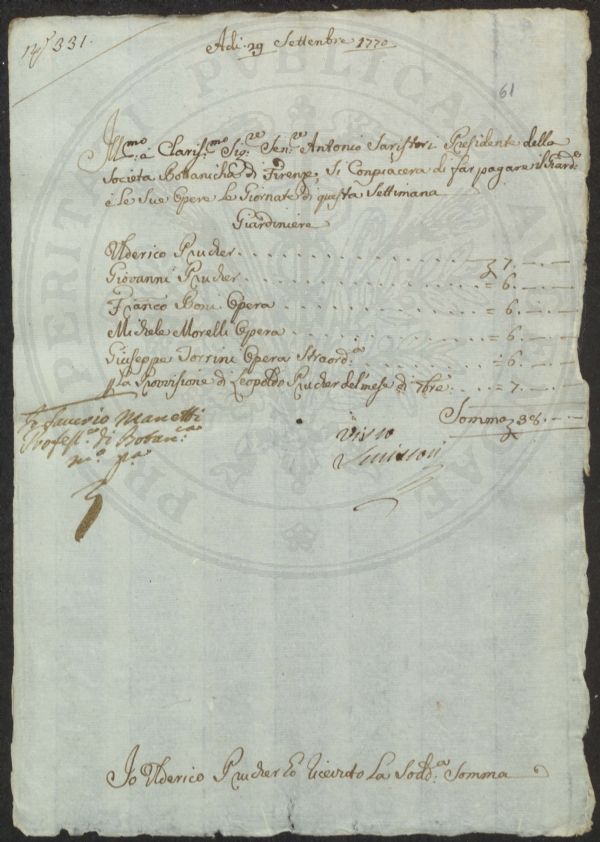 N° 331.
Adi 29 Settenbre 1770
61
Ill:mo e Clariss:mo Sig:re Sen:re Antonio Saristori Presidente della
Societa Botanicha di Firenze, Si Conpiacera di far pagare il Giard:e
e le Sue Opere le Giornate di questa Settimana
Giardiniere
Ulderico Prucher . . . . . . . . . 7. — . —
Giovanni Prucher . . . . . . . . . = 6. — . —
Franco Boni Opera . . . . . . . . . = 6. — . —
Michele Morelli Opera . . . . . . . . . = 6. — . —
Giuseppe Torrini Opera Straord:a . . . . . = 6. — . —
p la Provisione di Leopoldo Prucher del mese di 7bre . . . = 7. — . —
Somma 38. — . —
Saverio Manetti
Profess:e di Botan:ca
m:o p:a
Visto
Io Ulderico Prucher ho ricevuto La Sodd:a Somma
PERITATI PVBLICAE